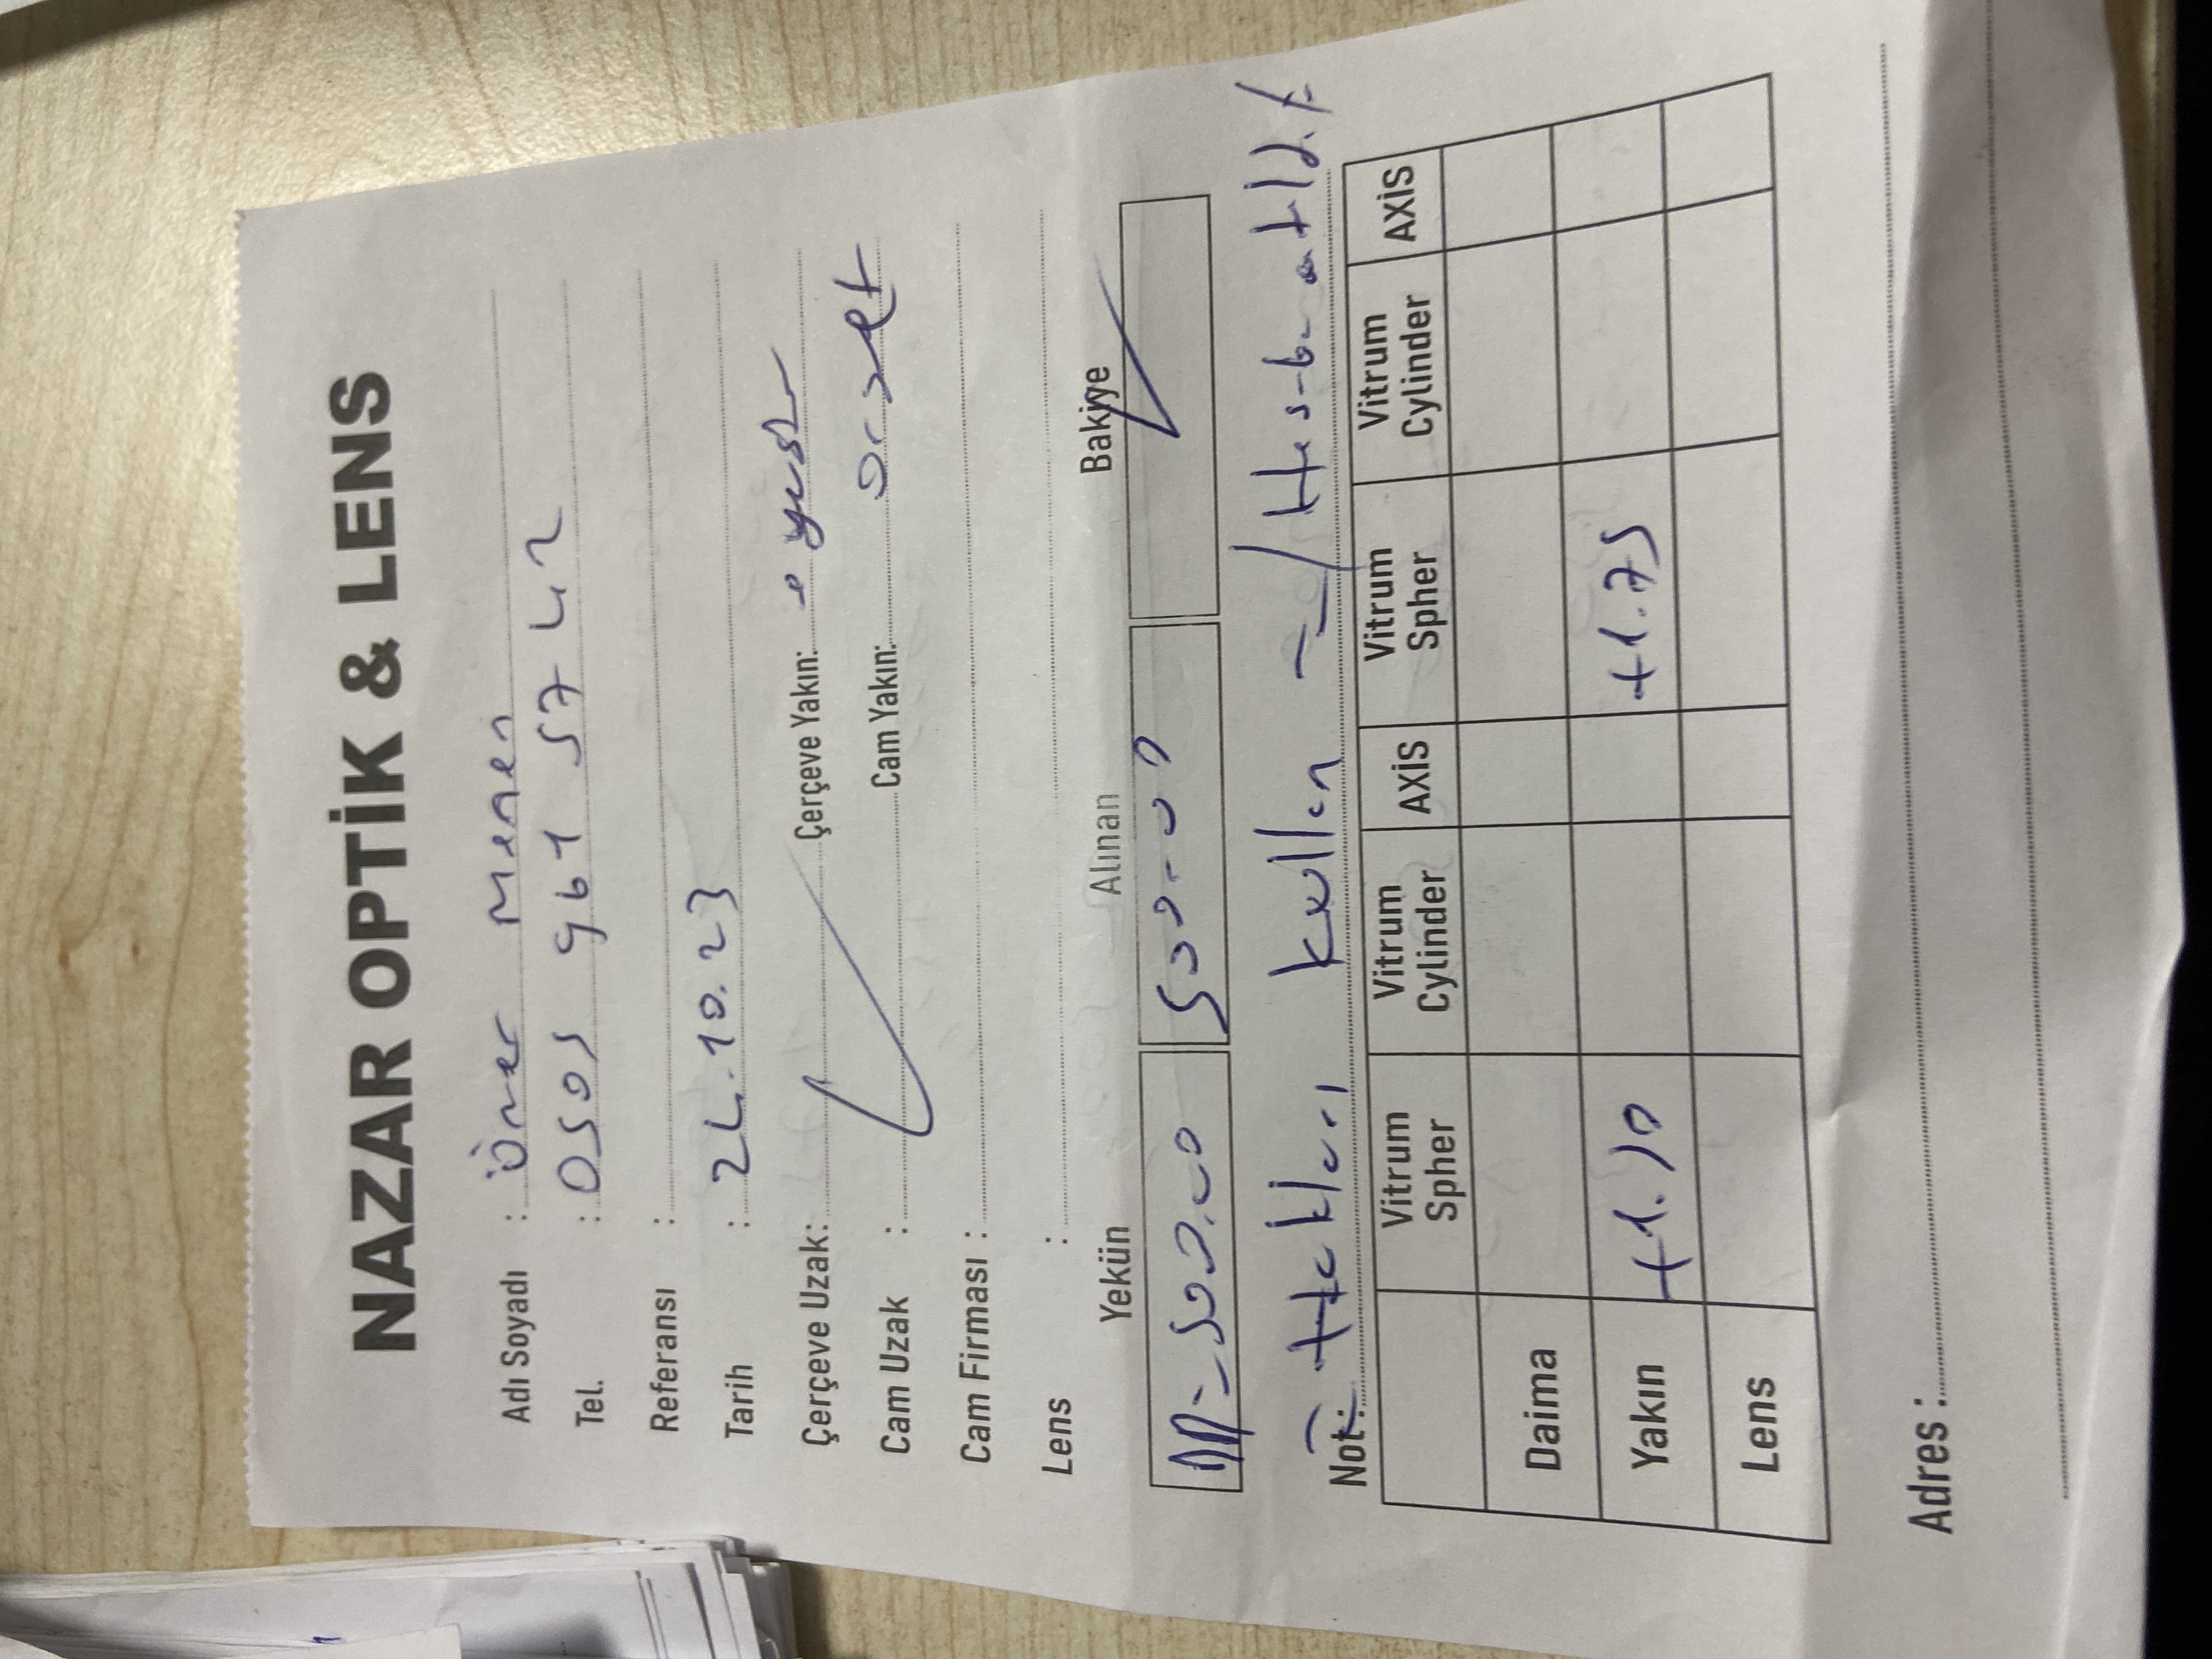 NAZAR OPTİK & LENS
Adı Soyadı : Ömer Menen
Tel. : 0505 961 57 42
Referansı :
Tarih : 24.10.23
Çerçeve Uzak: Çerçeve Yakın:
Cam Uzak : Cam Yakın:
Cam Firması :
Lens :
Yekün Alınan Bakiye
500.00 500-00
Not: = Hakları kullan = / Hesaba atıldı
Vitrum Spher Vitrum Cylinder AXİS Vitrum Spher Vitrum Cylinder AXİS
Daima
Yakın +1.50 +1.75
Lens
Adres :